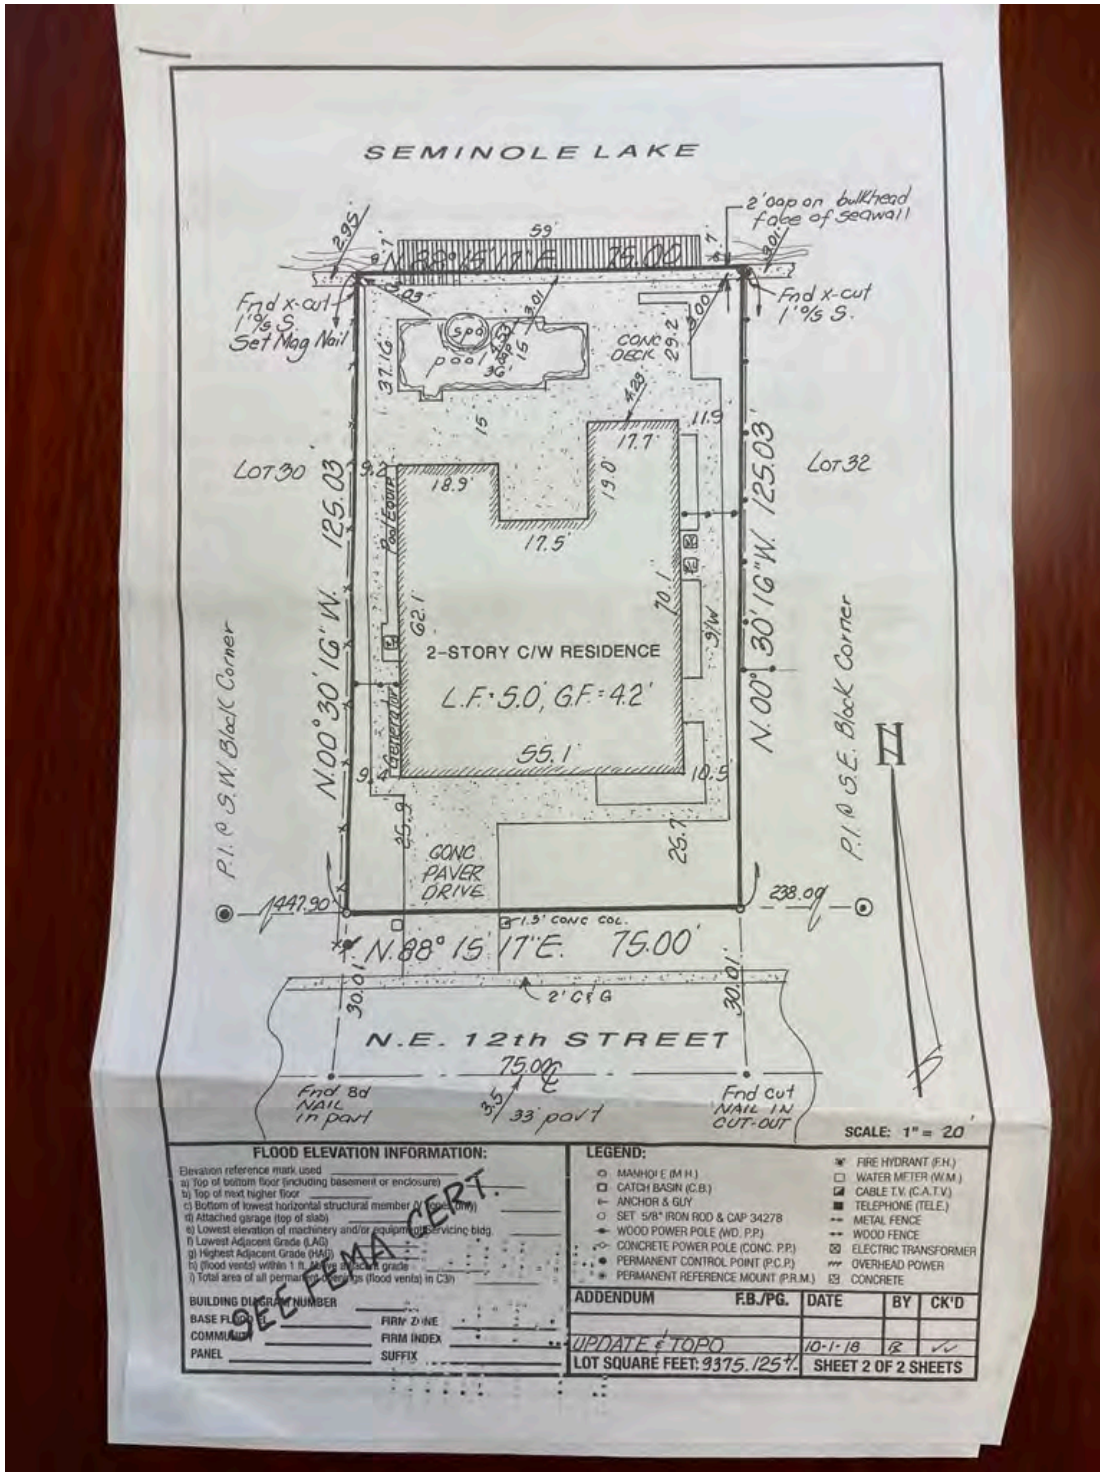 SEMINOLE LAKE
2' cap on bulkhead
face of seawall
59'
2.95
3.01
N. 88° 15' 17" E. 75.00'
Fnd x-cut
1' o/s S.
Set Mag Nail
Fnd x-cut
1' o/s S.
3.03
3.01
3.00
spa
pool
4.53
cap
36'
15
37.16'
CONC
DECK
29.2'
15'
4.23
11.9
17.7'
LOT 30
LOT 32
9.2
18.9'
19.0'
17.5'
Pool Equip.
N.00° 30' 16" W. 125.03'
N.00° 30' 16" W. 125.03'
62.1'
70.1'
S/W
2-STORY C/W RESIDENCE
L.F.= 5.0', G.F.= 4.2'
55.1'
Generator
9.4
10.5
P.I. @ S.W. Block Corner
P.I. @ S.E. Block Corner
25.9
25.7
CONC
PAVER
DRIVE
447.90'
238.09'
1.3' CONC COL.
N. 88° 15' 17" E. 75.00'
30.01'
30.01'
2' C & G
N.E. 12th STREET
75.00'
Fnd 8d
NAIL
in pavt
3.5
33' pavt
Fnd Cut
NAIL IN
CUT-OUT
SCALE: 1" = 20'
FLOOD ELEVATION INFORMATION:
Elevation reference mark used
a) Top of bottom floor (including basement or enclosure)
b) Top of next higher floor
c) Bottom of lowest horizontal structural member (V zones only)
d) Attached garage (top of slab)
e) Lowest elevation of machinery and/or equipment servicing bldg.
f) Lowest Adjacent Grade (LAG)
g) Highest Adjacent Grade (HAG)
h) (flood vents) within 1 ft. above adjacent grade
i) Total area of all permanent openings (flood vents) in C3h
SEE FEMA CERT.
BUILDING DIAGRAM NUMBER
BASE FLOOD EL FIRM ZONE
COMMUNITY FIRM INDEX
PANEL SUFFIX
LEGEND:
MANHOLE (M.H.)
CATCH BASIN (C.B.)
ANCHOR & GUY
SET 5/8" IRON ROD & CAP 34278
WOOD POWER POLE (WD. P.P.)
CONCRETE POWER POLE (CONC. P.P.)
PERMANENT CONTROL POINT (P.C.P.)
PERMANENT REFERENCE MOUNT (P.R.M.)
FIRE HYDRANT (F.H.)
WATER METER (W.M.)
CABLE T.V. (C.A.T.V.)
TELEPHONE (TELE.)
METAL FENCE
WOOD FENCE
ELECTRIC TRANSFORMER
OVERHEAD POWER
CONCRETE
ADDENDUM F.B./PG. DATE BY CK'D
UPDATE & TOPO 10-1-18
LOT SQUARE FEET: 9375.125 SHEET 2 OF 2 SHEETS